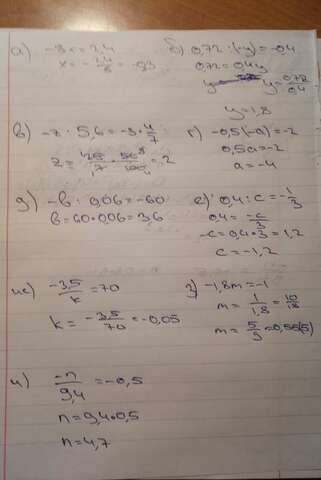 а) -8x = 2,4
x = -2,4/8 = -0,3
б) 0,72 : (-y) = -0,4
0,72 = 0,4y
y = 0,72/0,4
y = 1,8
в) -z · 5,6 = -3 · 4/7
г) -0,5(-a) = -2
0,5a = -2
a = -4
д) -b : 0,06 = -60
b = 60 · 0,06 = 3,6
е) 0,4 : c = -1/3
0,4 = -c/3
-c = 0,4 · 3 = 1,2
c = -1,2
ж) -3,5/k = 70
k = -3,5/70 = -0,05
з) -1,8m = -1
m = 1/1,8 = 10/18
m = 5/9 = 0,55(5)
и) -n/9,4 = -0,5
n = 9,4 · 0,5
n = 4,7